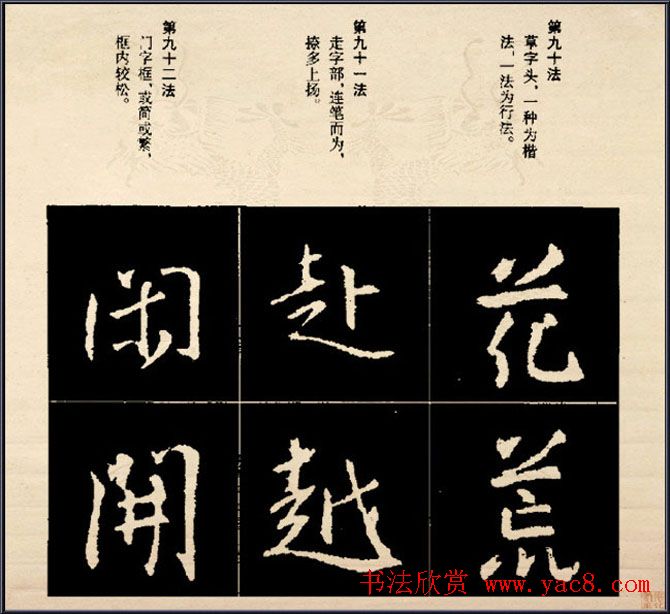 第九十法
草字头，一种为楷
法，一法为行法。
第九十一法
走字部，连笔而为，
捺多上扬。
第九十二法
门字框，或简或繁，
框内较松。
花
荒
赴
越
闲
開
书法欣赏 www.yac8.com